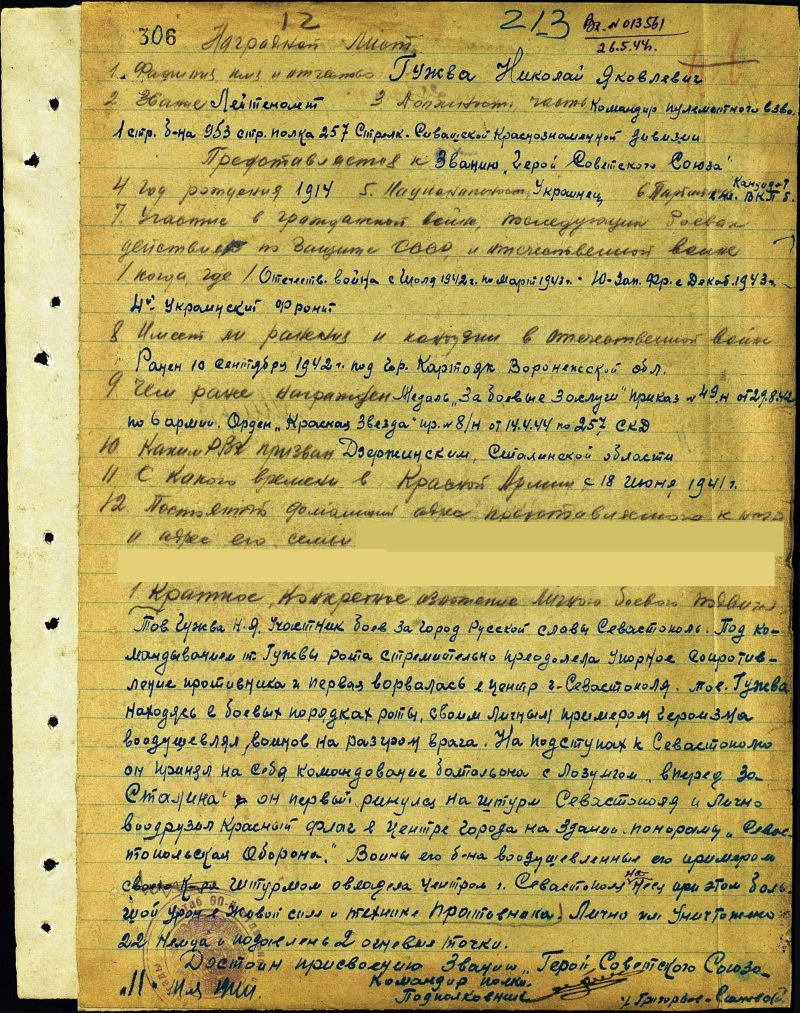 306
12
213
Вх. № 013561
26.5.44г.
Наградной Лист
1. Фамилия имя и отчество Гужва Николай Яковлевич
2 Звание Лейтенант 3 Должность, часть Командир пулеметного взво.
1 стр. б-на 953 стр. полка 257 Стрелк. Сивашской Краснознаменной дивизии
Представляется к Званию „Герой Советского Союза"
4 Год рождения 1914 5. Национальность Украинец 6 Партийность Кандидат в чл. ВКПб.
7. Участие в гражданской войне, последующих боевых
действиях по защите СССР, и отечественной войне
/когда, где/ Отечеств. война с Июля 1942г. по Март 1943г. - Ю-Зап. Фр. с Декаб. 1943г.
4й Украинский Фронт
8 Имеет ли ранения и контузии в отечественной войне
Ранен 10 Сентября 1942г. под гор. Картояк Воронежской обл.
9 Чем ранее награжден Медаль „За боевые Заслуги" приказ №49/н от 29.8.42
по 6 армии. Орден „Красная Звезда" пр. №8/н от 14.4.44 по 257 СКД
10 Каким РВК призван Дзержинским, Сталинской области
11 С какого времени в Красной Армии с 18 Июня 1941г.
12. Постоянный домашний адрес представляемого к награ
и адрес его семьи
1 Краткое, конкретное изложение личного боевого подвига
Тов Гужва Н.Я. Участник боев за город Русской славы Севастополь. Под ко-
мандыванием т. Гужвы рота стремительно преодолела Упорное Сопротив-
ление противника и первая ворвалась в центр г. Севастополя. тов. Гужва
находясь в боевых порядках роты, своим личным примером героизма
воодушевлял воинов на разгром врага. На подступах к Севастополю
он принял на себя командование батальона с Лозунгом „вперед За
Сталина" он первый ринулся на штурм Севастополя и лично
воодрузил Красный флаг в центре города на здании панорамы „Севас-
топольская Оборона." Воины его б-на воодушевленные его примером
штурмом овладела центром г. Севастополя нанеся при этом боль-
шой урон в живой силе и технике противника. Лично им Уничтожено
22 немца и подавлено 2 огневые точки.
Достоин присвоению Звания „Герой Советского Союза
"11" мая 44г.
Командир полка
Подполковник
/Григорьев-Сланевский